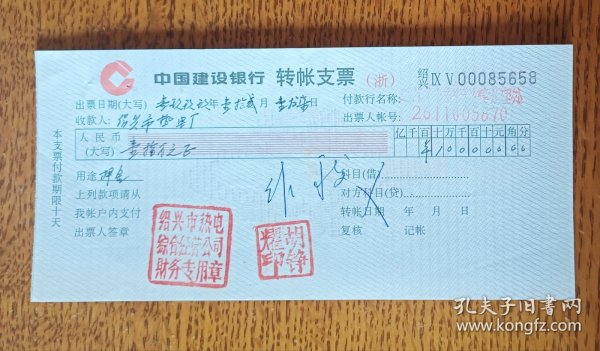 中国建设银行 转帐支票（浙） 绍兴 IX V 00085658
出票日期(大写) 年 月 日 付款行名称:
收款人: 绍兴市 厂 出票人帐号: 2611005870
人民币
(大写) 亿 千 百 十 万 千 百 十 元 角 分
用途 押金 科目(借)
上列款项请从 对方科目(贷)
我帐户内支付 转帐日期 年 月 日
出票人签章 复核 记帐
本支票付款期限十天
绍兴市热电
综合经营公司
财务专用章
胡铮
耀印
孔夫子旧书网
www.kongfz.com